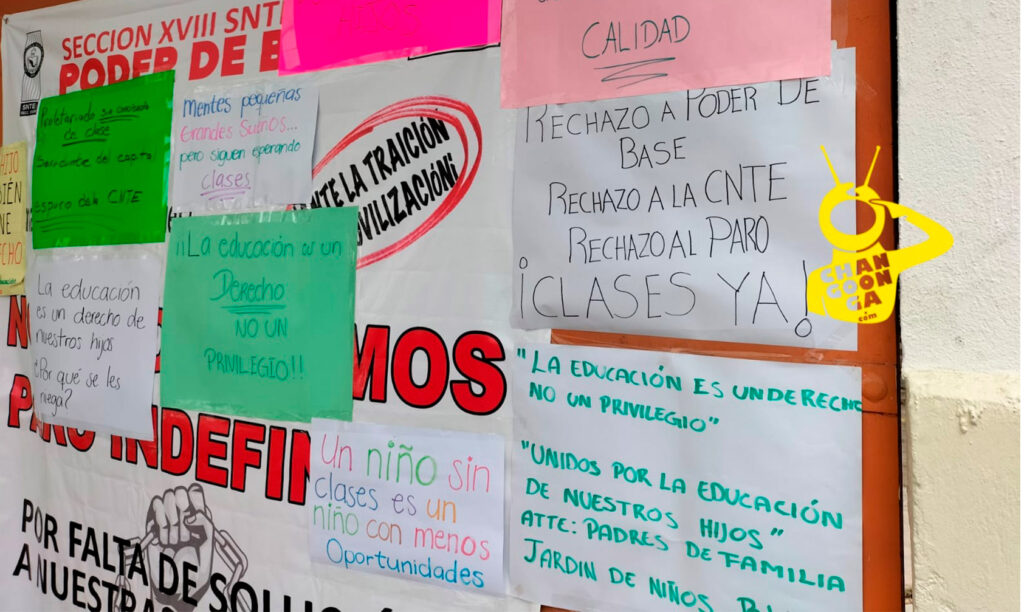 SECCION XVIII SNTE
PODER DE B
SNTE
CALIDAD
Proletariado sin conciencia
de clase
Sacrificante del capital
CNTE
Mentes pequeñas
Grandes Sueños...
pero siguen esperando
clases
NTE LA TRAICIÓN
OVILIZACIÓN!
RECHAZO A PODER DE
BASE
RECHAZO A LA CNTE
RECHAZO AL PARO
¡CLASES YA!
HIJO
BIÉN
NE
CHO
¡¡La educación es un
Derecho
NO UN
PRIVILEGIO!!
La educación
es un derecho de
nuestros hijos
¿Por qué se les
niega?
MOS
PARO INDEFINI
Un niño sin
clases es un
niño con menos
Oportunidades
"LA EDUCACIÓN ES UN DERECHO
NO UN PRIVILEGIO"
"UNIDOS POR LA EDUCACIÓN
DE NUESTROS HIJOS"
ATTE: PADRES DE FAMILIA
JARDIN DE NIÑOS
POR FALTA DE SOLUCI
A NUESTRAS
CHAN
GOON
GA
.com